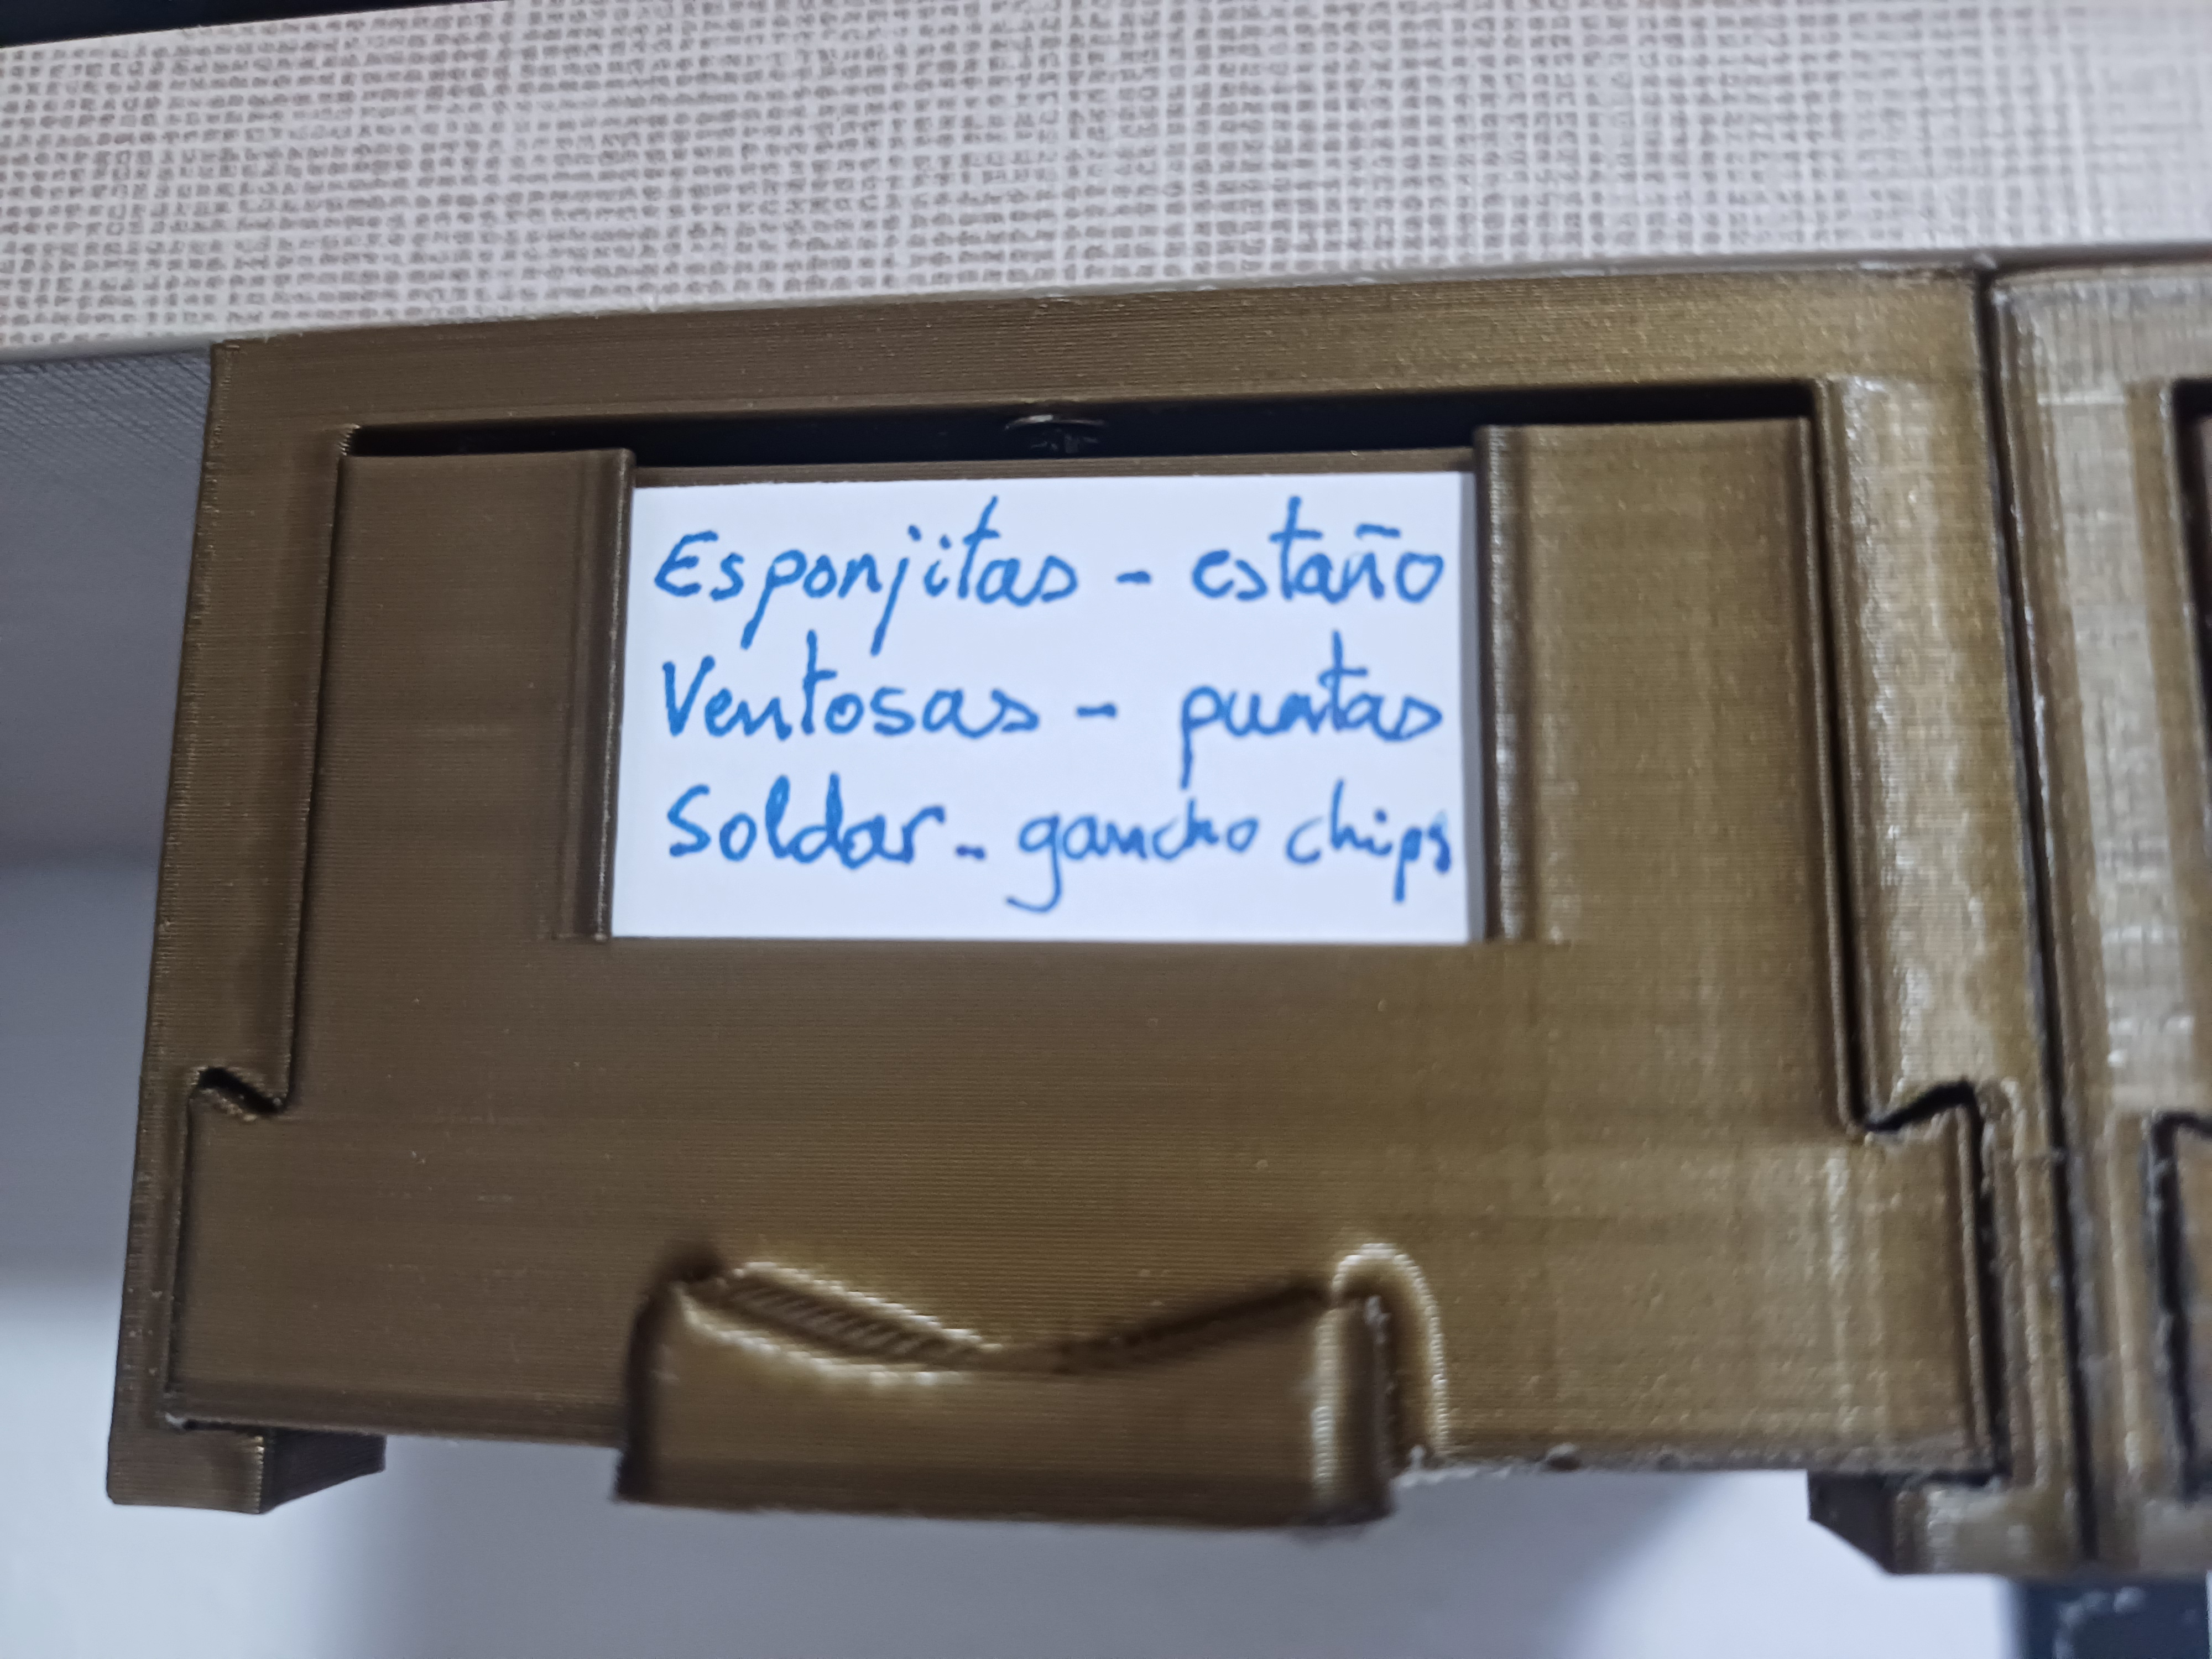 Esponjitas - estaño
Ventosas - puntas
Soldar - gancho chips